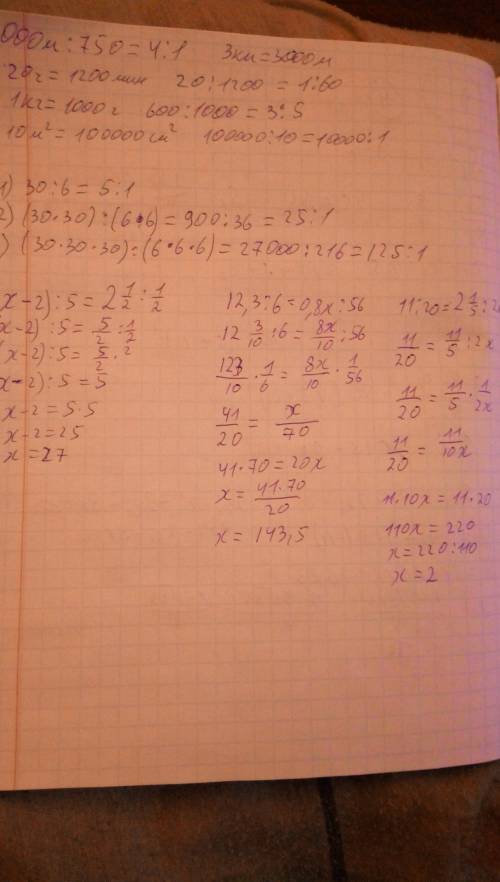 000м : 750 = 4 : 1   3км = 3000м
20ч = 1200 мин   20 : 1200 = 1 : 60
1кг = 1000 г   600 : 1000 = 3 : 5
10м² = 100000см²   100000 : 10 = 10000 : 1
1) 30 : 6 = 5 : 1
2) (30·30) : (6·6) = 900 : 36 = 25 : 1
) (30·30·30) : (6·6·6) = 27000 : 216 = 125 : 1
x-2) : 5 = 2 1/2 : 1/2
x-2) : 5 = 5/2 : 1/2
(x-2) : 5 = 5/2 · 2
x-2) : 5 = 5
x-2 = 5·5
x-2 = 25
x = 27
12,3 : 6 = 0,8x : 56
12 3/10 : 6 = 8x/10 : 56
123/10 · 1/6 = 8x/10 · 1/56
41/20 = x/70
41·70 = 20x
x = 41·70/20
x = 143,5
11 : 20 = 2 1/5 : 2
11/20 = 11/5 : 2x
11/20 = 11/5 · 1/2x
11/20 = 11/10x
11·10x = 11·20
110x = 220
x = 220 : 110
x = 2